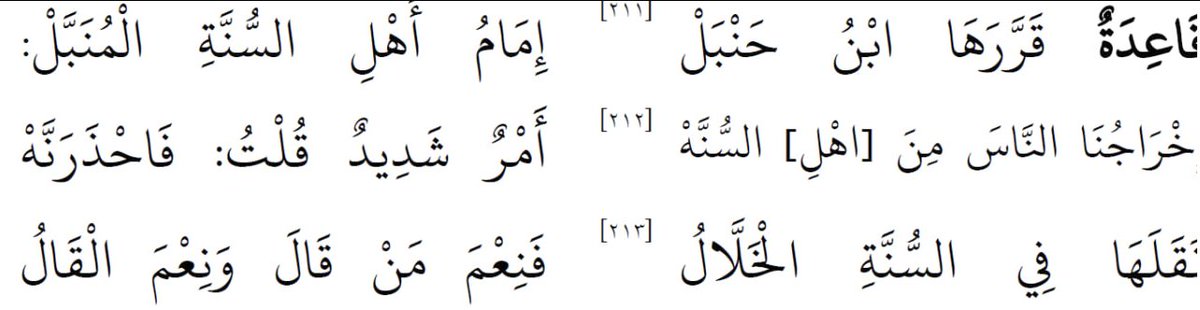 قَاعِدَةٌ قَرَّرَهَا ابْنُ حَنْبَلْ [٢١١] إِمَامُ أَهْلِ السُّنَّةِ الْمُنَبَّلْ:
إِخْرَاجُنَا النَّاسَ مِنَ [اهْلِ] السُّنَّهْ [٢١٢] أَمْرٌ شَدِيدٌ قُلْتُ: فَاحْذَرَنَّهْ
نَقَلَهَا فِي السُّنَّةِ الْخَلَّالُ [٢١٣] فَنِعْمَ مَنْ قَالَ وَنِعْمَ الْقَالُ